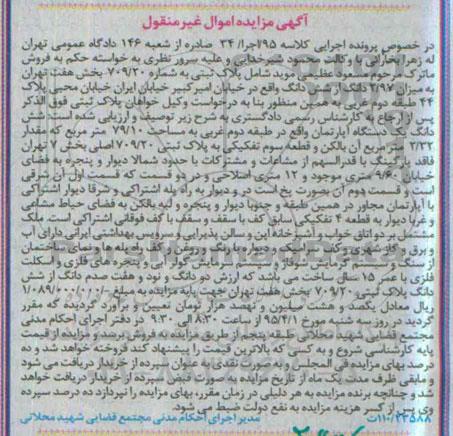 آگهی مزایده اموال غیر منقول
در خصوص پرونده اجرایی کلاسه 95/اجرا/34 صادره از شعبه 146 دادگاه عمومی تهران
له زهرا بخارائی با وکالت محمود شیرخدایی و علیه سرور نظری به خواسته حکم به فروش
ماترک مرحوم مسعود عظیمی موید شامل پلاک ثبتی به شماره 709/20 بخش هفت تهران
به میزان 2/97 دانگ از شش دانگ واقع در خیابان امیرکبیر خیابان ایران خیابان محبی پلاک
44 طبقه دوم غربی به همین منظور بنا به درخواست وکیل خواهان پلاک ثبتی فوق الذکر
پس از ارجاع به کارشناس رسمی دادگستری به شرح زیر توصیف و ارزیابی شده است شش
دانگ یک دستگاه آپارتمان واقع در طبقه دوم غربی به مساحت 79/10 متر مربع که مقدار
2/32 متر مربع آن بالکن و قطعه سوم تفکیکی به پلاک ثبتی 709/20 اصلی بخش 7 تهران
فاقد پارکینگ با قدرالسهم از مشاعات و مشترکات با حدود شمالا دیوار و پنجره به فضای
خیابان 9/60 متری موجود و 12 متری اصلاحی و در دو قسمت که قسمت اول آن شرقی
است و قسمت دوم آن بصورت پخ است در و دیوار به راه پله اشتراکی و شرقا دیوار اشتراکی
با آپارتمان مجاور در همین طبقه و جنوبا دیوار و پنجره و لبه بالکن به فضای حیاط مشاعی
و غربا دیوار به قطعه 4 تفکیکی سابق کف با سقف و سقف با کف فوقانی اشتراکی است. ملک
مشتمل بر دو اتاق خواب و آشپزخانه اپن و سالن پذیرایی و سرویس بهداشتی ایرانی دارای آب
و برق و گاز شهری و کف سرامیک و دیواره با رنگ و روغن و کف راه پله ها و نمای ساختمان
از سنگ و سیستم گرمایش شوفاژ و سیستم سرمایش کولر آبی و پنجره های فلزی و اسکلت
فلزی با عمر 15 سال ساخت می باشد که ارزش دو دانگ و نود و هفت صدم دانگ از شش
دانگ پلاک ثبتی 709/20 بخش هفت تهران جهت پایه مزایده به مبلغ 1/089/000/000/-
ریال معادل یکصد و هشت میلیون و نهصد هزار تومان تعیین و برآورد گردیده که مقرر
گردید در روز سه شنبه مورخ 95/4/1 از ساعت 8:30 الی 9:30 در دفتر اجرای احکام مدنی
مجتمع قضایی شهید محلاتی طبقه پنجم از طریق مزایده به فروش برسد و مزایده از قیمت
پایه کارشناسی شروع و به کسی که بالاترین قیمت را پیشنهاد کند فروخته خواهد شد و ده
درصد بهای مزایده فی المجلس و به صورت نقدی به عنوان سپرده از خریدار دریافت می شود
و مابقی ظرف مدت یک ماه از تاریخ مزایده به صورت فیش سپرده از خریدار دریافت خواهد
شد و چنانچه برنده مزایده به هر دلیلی در زمان مقرر، بهای مزایده را نپردازد ده درصد سپرده
وی پس از کسر هزینه مزایده به نفع دولت ضبط می شود.
110/23588ت مدیر اجرای احکام مدنی مجتمع قضایی شهید محلاتی